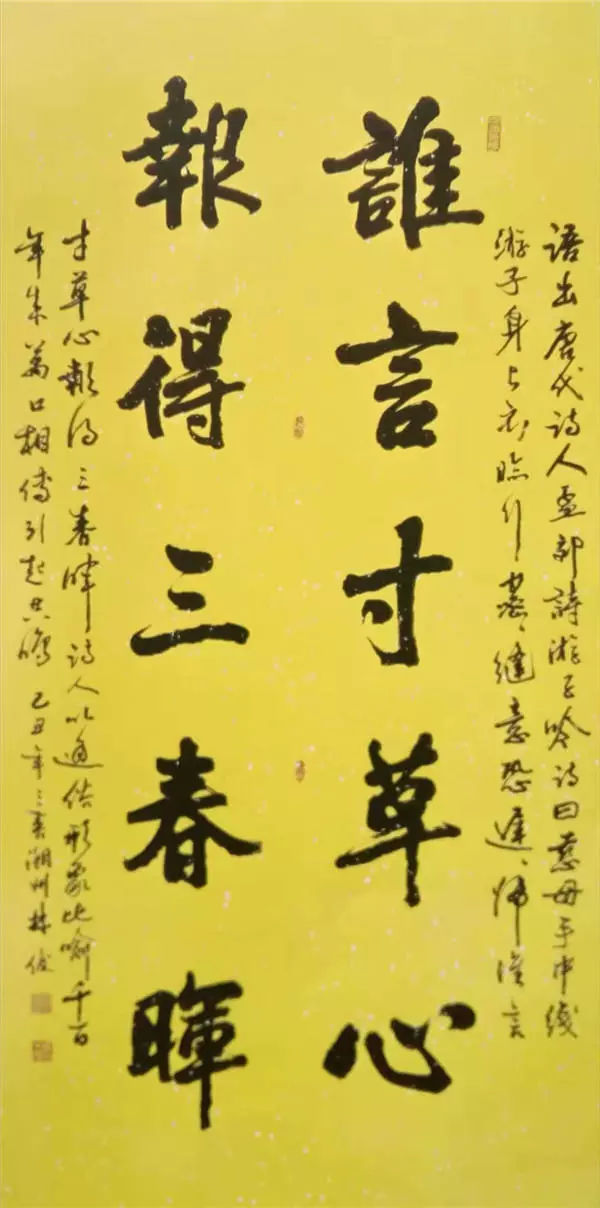 誰言寸草心
報得三春暉
语出唐代诗人孟郊詩游子吟诗曰慈母手中线
游子身上衣临行密密缝意恐迟迟归谁言
寸草心報得三春晖诗人以通俗形象比喻千百
年来万口相传引起共鸣 己丑年三春潮州林俊